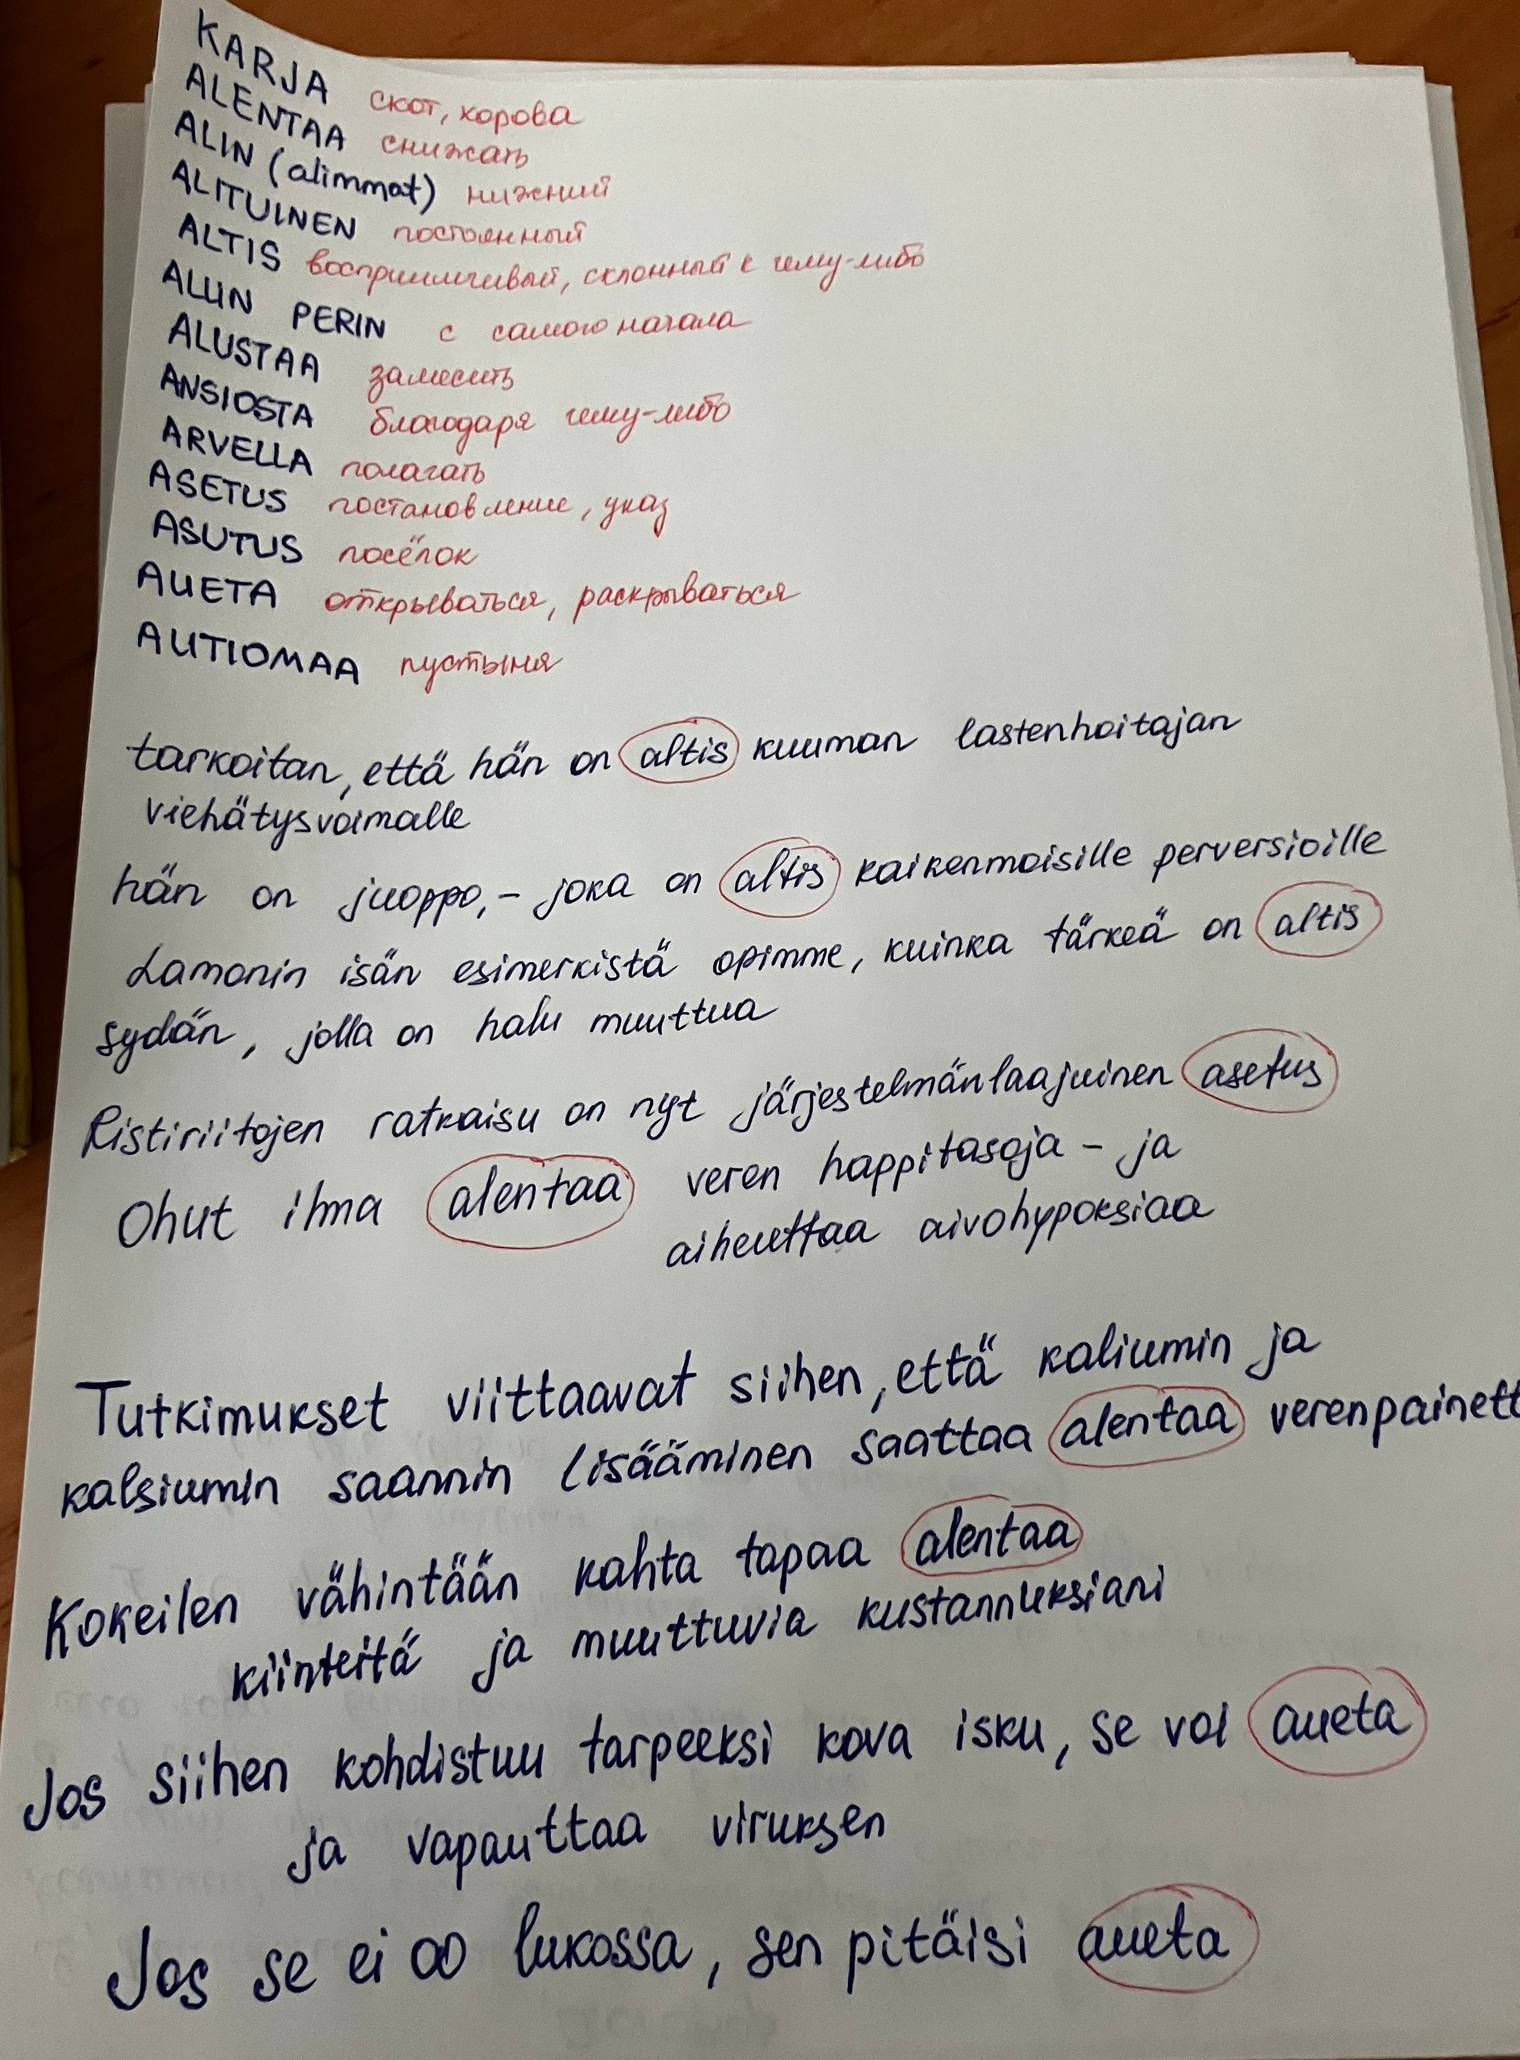 KARJA скот, корова
ALENTAA снижать
ALIN (alimmat) нижний
ALITUINEN постоянный
ALTIS восприимчивый, склонный к чему-либо
ALUN PERIN с самого начала
ALUSTAA замесить
ANSIOSTA благодаря чему-либо
ARVELLA полагать
ASETUS постановление, указ
ASUTUS посёлок
AUETA открываться, раскрываться
AUTIOMAA пустыня
tarkoitan, että hän on altis kuuman lastenhoitajan
viehätysvoimalle
hän on juoppo, - joka on altis kaikenmoisille perversioille
Lamonin isän esimerkistä opimme, kuinka tärkeä on altis
sydän, jolla on halu muuttua
Ristiriitojen ratkaisu on nyt järjestelmänlaajuinen asetus
Ohut ilma alentaa veren happitasoja - ja
aiheuttaa aivohypoksiaa
Tutkimukset viittaavat siihen, että kaliumin ja
kalsiumin saannin lisääminen saattaa alentaa verenpainett
Kokeilen vähintään kahta tapaa alentaa
kiinteitä ja muuttuvia kustannuksiani
Jos siihen kohdistuu tarpeeksi kova isku, se voi aueta
ja vapauttaa viruksen
Jos se ei oo lukossa, sen pitäisi aueta